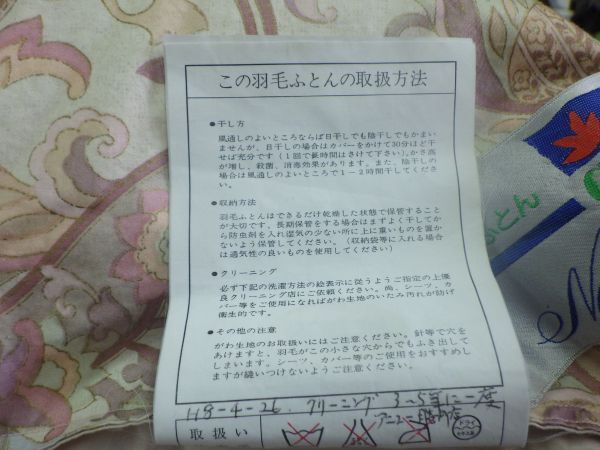 この羽毛ふとんの取扱方法
●干し方
風通しのよいところならば日干しでも陰干しでもかまい
ませんが、日干しの場合はカバーをかけて30分ほど干
せば充分です(1回で長時間はさけて下さい)。かさ高
が増し、殺菌、消毒効果があります。また、陰干しの
場合は風通しのよいところで1−2時間干してくださ
い。
●収納方法
羽毛ふとんはできるだけ乾燥した状態で保管すること
が大切です。長期保管をする場合はまずよく干してか
ら防虫剤を入れ湿気の少ない所に上に重いものを置か
ないよう保管してください。(収納袋等に入れる場合
は通気性の良いものを使用してください)
●クリーニング
必ず下記の洗濯方法の絵表示に従うようご指定の上優
良クリーニング店にご依頼ください。尚、シーツ、カ
バー等をご使用になればがわ生地のいたみ汚れが防げ
衛生的です。
●その他の注意
がわ生地のお取扱いにはご注意ください。針等で穴を
あけますと、羽毛がこの小さな穴からでもふき出して
しまいます。シーツ、カバー等のご使用をおすすめし
ますが縫いつけないようご注意ください。
H8-4-26. クリーニング 3〜5年に一度
取扱い
ドライ
ふとん